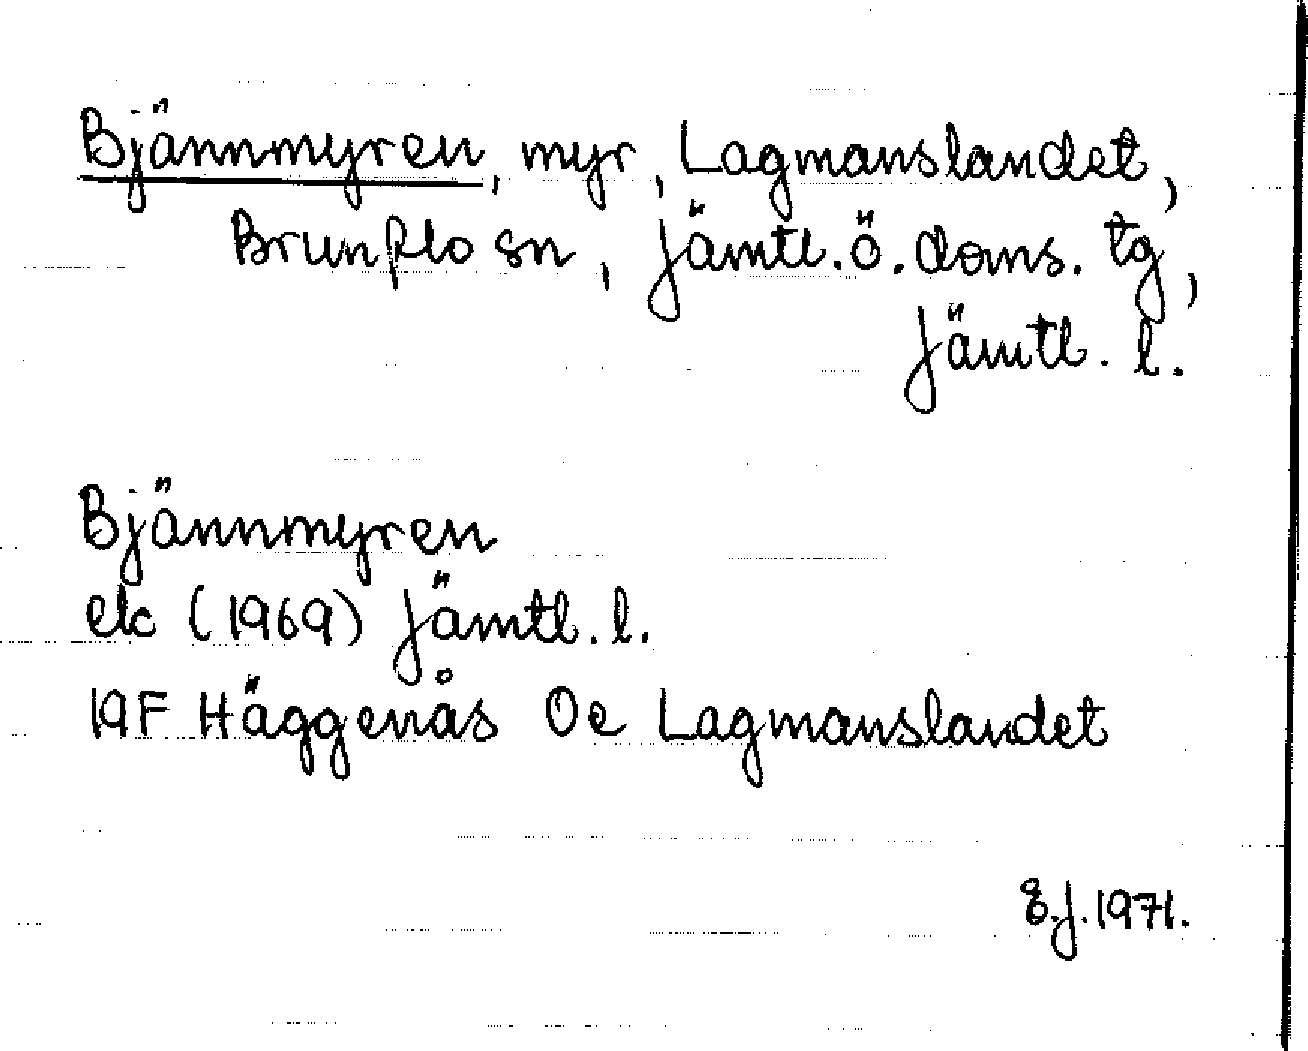 Bjännmyren, myr, Lagmanslandet,
Brunflo sn, Jämtl. ö. doms. tg,
Jämtl. l.
Bjännmyren
ek (1969) Jämtl. l.
19F Häggenås Oe Lagmanslandet
E.J. 1971.